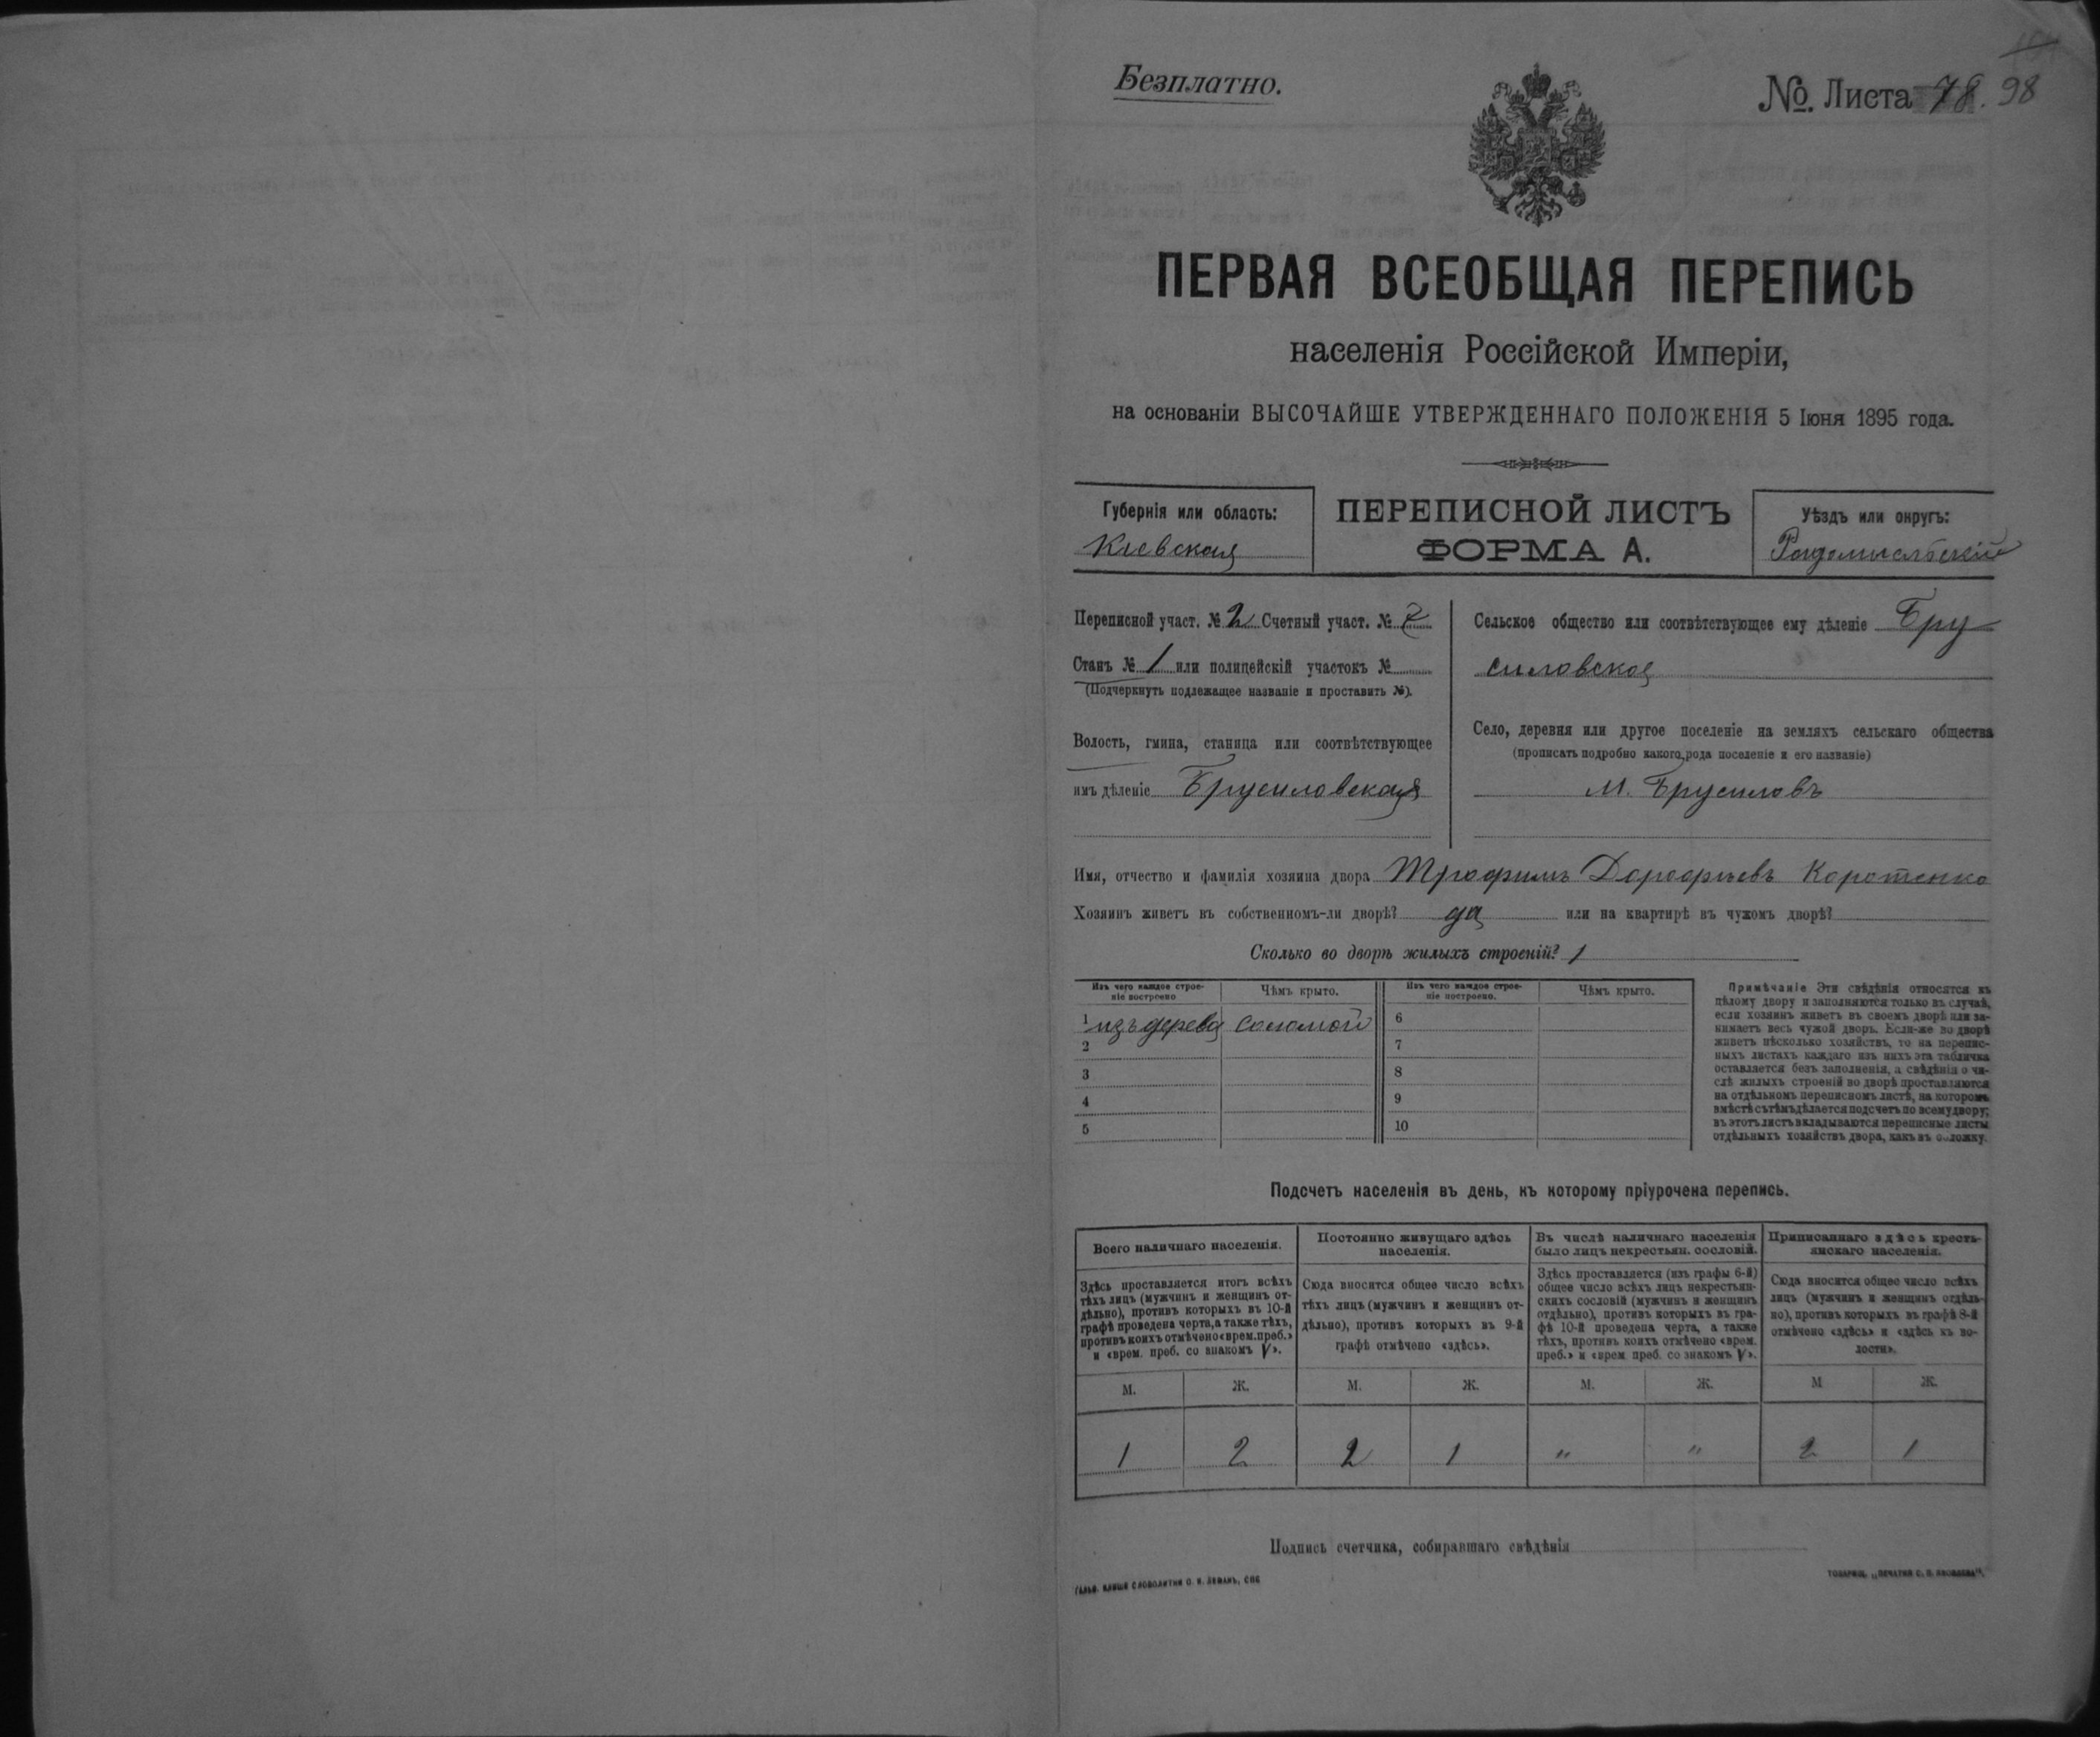 Безплатно.
№ Листа 78. 98
ПЕРВАЯ ВСЕОБЩАЯ ПЕРЕПИСЬ
населенія Россійской Имперіи,
на основаніи ВЫСОЧАЙШЕ УТВЕРЖДЕННАГО ПОЛОЖЕНІЯ 5 Іюня 1895 года.
Губернія или область:
Кіевская
ПЕРЕПИСНОЙ ЛИСТЪ
ФОРМА А.
Уѣздъ или округъ:
Радомысльскій
Переписной участ. № 2 Счетный участ. № 7
Станъ № 1 или полицейскій участокъ №
(Подчеркнуть подлежащее названіе и проставить №).
Волость, гмина, станица или соотвѣтствующее
имъ дѣленіе Брусиловская
Сельское общество или соотвѣтствующее ему дѣленіе Бру
силовское
Село, деревня или другое поселеніе на земляхъ сельскаго общества
(прописать подробно какого рода поселеніе и его названіе)
М. Брусиловъ
Имя, отчество и фамилія хозяина двора Трофимъ Дорофѣевъ Коротенко
Хозяинъ живетъ въ собственномъ-ли дворѣ? да или на квартирѣ въ чужомъ дворѣ?
Сколько во дворѣ жилыхъ строеній? 1
Изъ чего каждое строе-
ніе построено
Чѣмъ крыто.
Изъ чего каждое строе-
ніе построено.
Чѣмъ крыто.
1 изъ дерева соломой 6
2 7
3 8
4 9
5 10
Примѣчаніе Эти свѣдѣнія относятся къ
цѣлому двору и заполняются только въ случаѣ,
если хозяинъ живетъ въ своемъ дворѣ или за-
нимаетъ весь чужой дворъ. Если-же во дворѣ
живетъ нѣсколько хозяйствъ, то на перепис-
ныхъ листахъ каждаго изъ нихъ эта табличка
оставляется безъ заполненія, а свѣдѣнія о чи-
слѣ жилыхъ строеній во дворѣ проставляются
на отдѣльномъ переписномъ листѣ, на которомъ
вмѣстѣ съ тѣмъ дѣлается подсчетъ по всему двору;
въ этотъ листъ вкладываются переписные листы
отдѣльныхъ хозяйствъ двора, какъ въ обложку.
Подсчетъ населенія въ день, къ которому пріурочена перепись.
Всего наличнаго населенія.
Здѣсь проставляется итогъ всѣхъ
тѣхъ лицъ (мужчинъ и женщинъ от-
дѣльно), противъ которыхъ въ 10-й
графѣ проведена черта, а также тѣхъ,
противъ коихъ отмѣчено «врем. преб.»
и «врем. преб. со знакомъ V».
Постоянно живущаго здѣсь
населенія.
Сюда вносится общее число всѣхъ
тѣхъ лицъ (мужчинъ и женщинъ от-
дѣльно), противъ которыхъ въ 9-й
графѣ отмѣчено «здѣсь».
Въ числѣ наличнаго населенія
было лицъ некрестьян. сословій.
Здѣсь проставляется (изъ графы 6-й)
общее число всѣхъ лицъ некрестьян-
скихъ сословій (мужчинъ и женщинъ
отдѣльно), противъ которыхъ въ гра-
фѣ 10-й проведена черта, а также
тѣхъ, противъ коихъ отмѣчено «врем.
преб.» и «врем. преб. со знакомъ V».
Приписаннаго здѣсь кресть-
янскаго населенія.
Сюда вносится общее число всѣхъ
лицъ (мужчинъ и женщинъ отдѣль-
но), противъ которыхъ въ графѣ 8-й
отмѣчено «здѣсь» и «здѣсь къ во-
лости».
М. Ж. М. Ж. М. Ж. М Ж.
1 2 2 1 " " 2 1
Подпись счетчика, собиравшаго свѣдѣнія
ГАЛЬВ. КЛИШЕ СЛОВОЛИТНИ О. И. ЛЕМАНЪ, СПБ
ТОВАРИЩ. „ПЕЧАТНЯ С. П. ЯКОВЛЕВА".